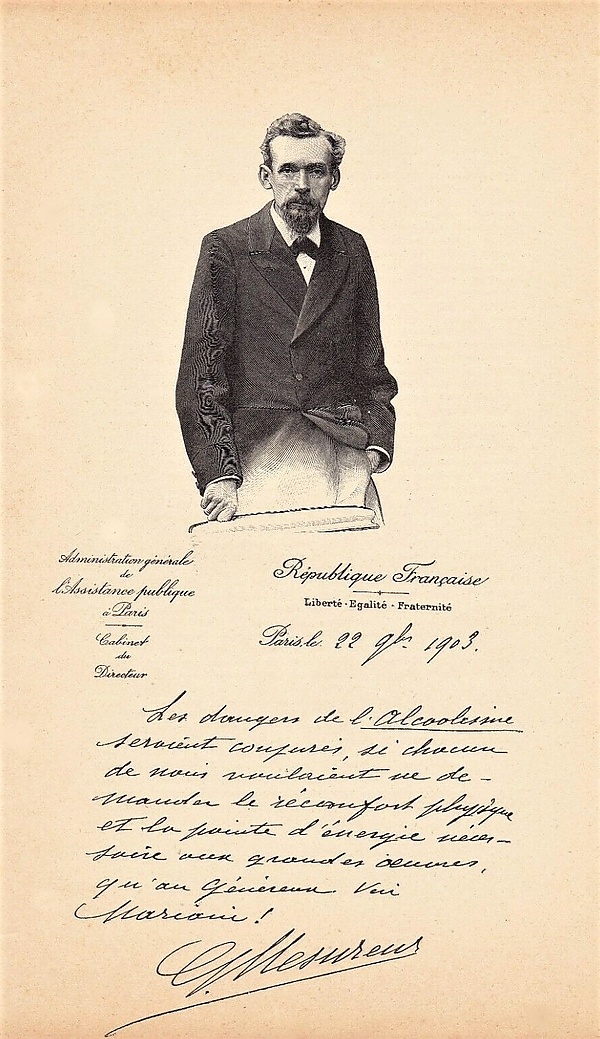 Administration générale
de
l'Assistance publique
à Paris
Cabinet
du
Directeur
République Française
Liberté - Egalité - Fraternité
Paris, le 22 9bre 1903.
Les dangers de l'Alcoolisme
seraient conjurés, si chacun
de nous voulaient ne de-
mander le réconfort physique
et la pointe d'énergie néces-
saire aux grandes œuvres,
qu'au Généreux Vin
Mariani !
G. Mesureur